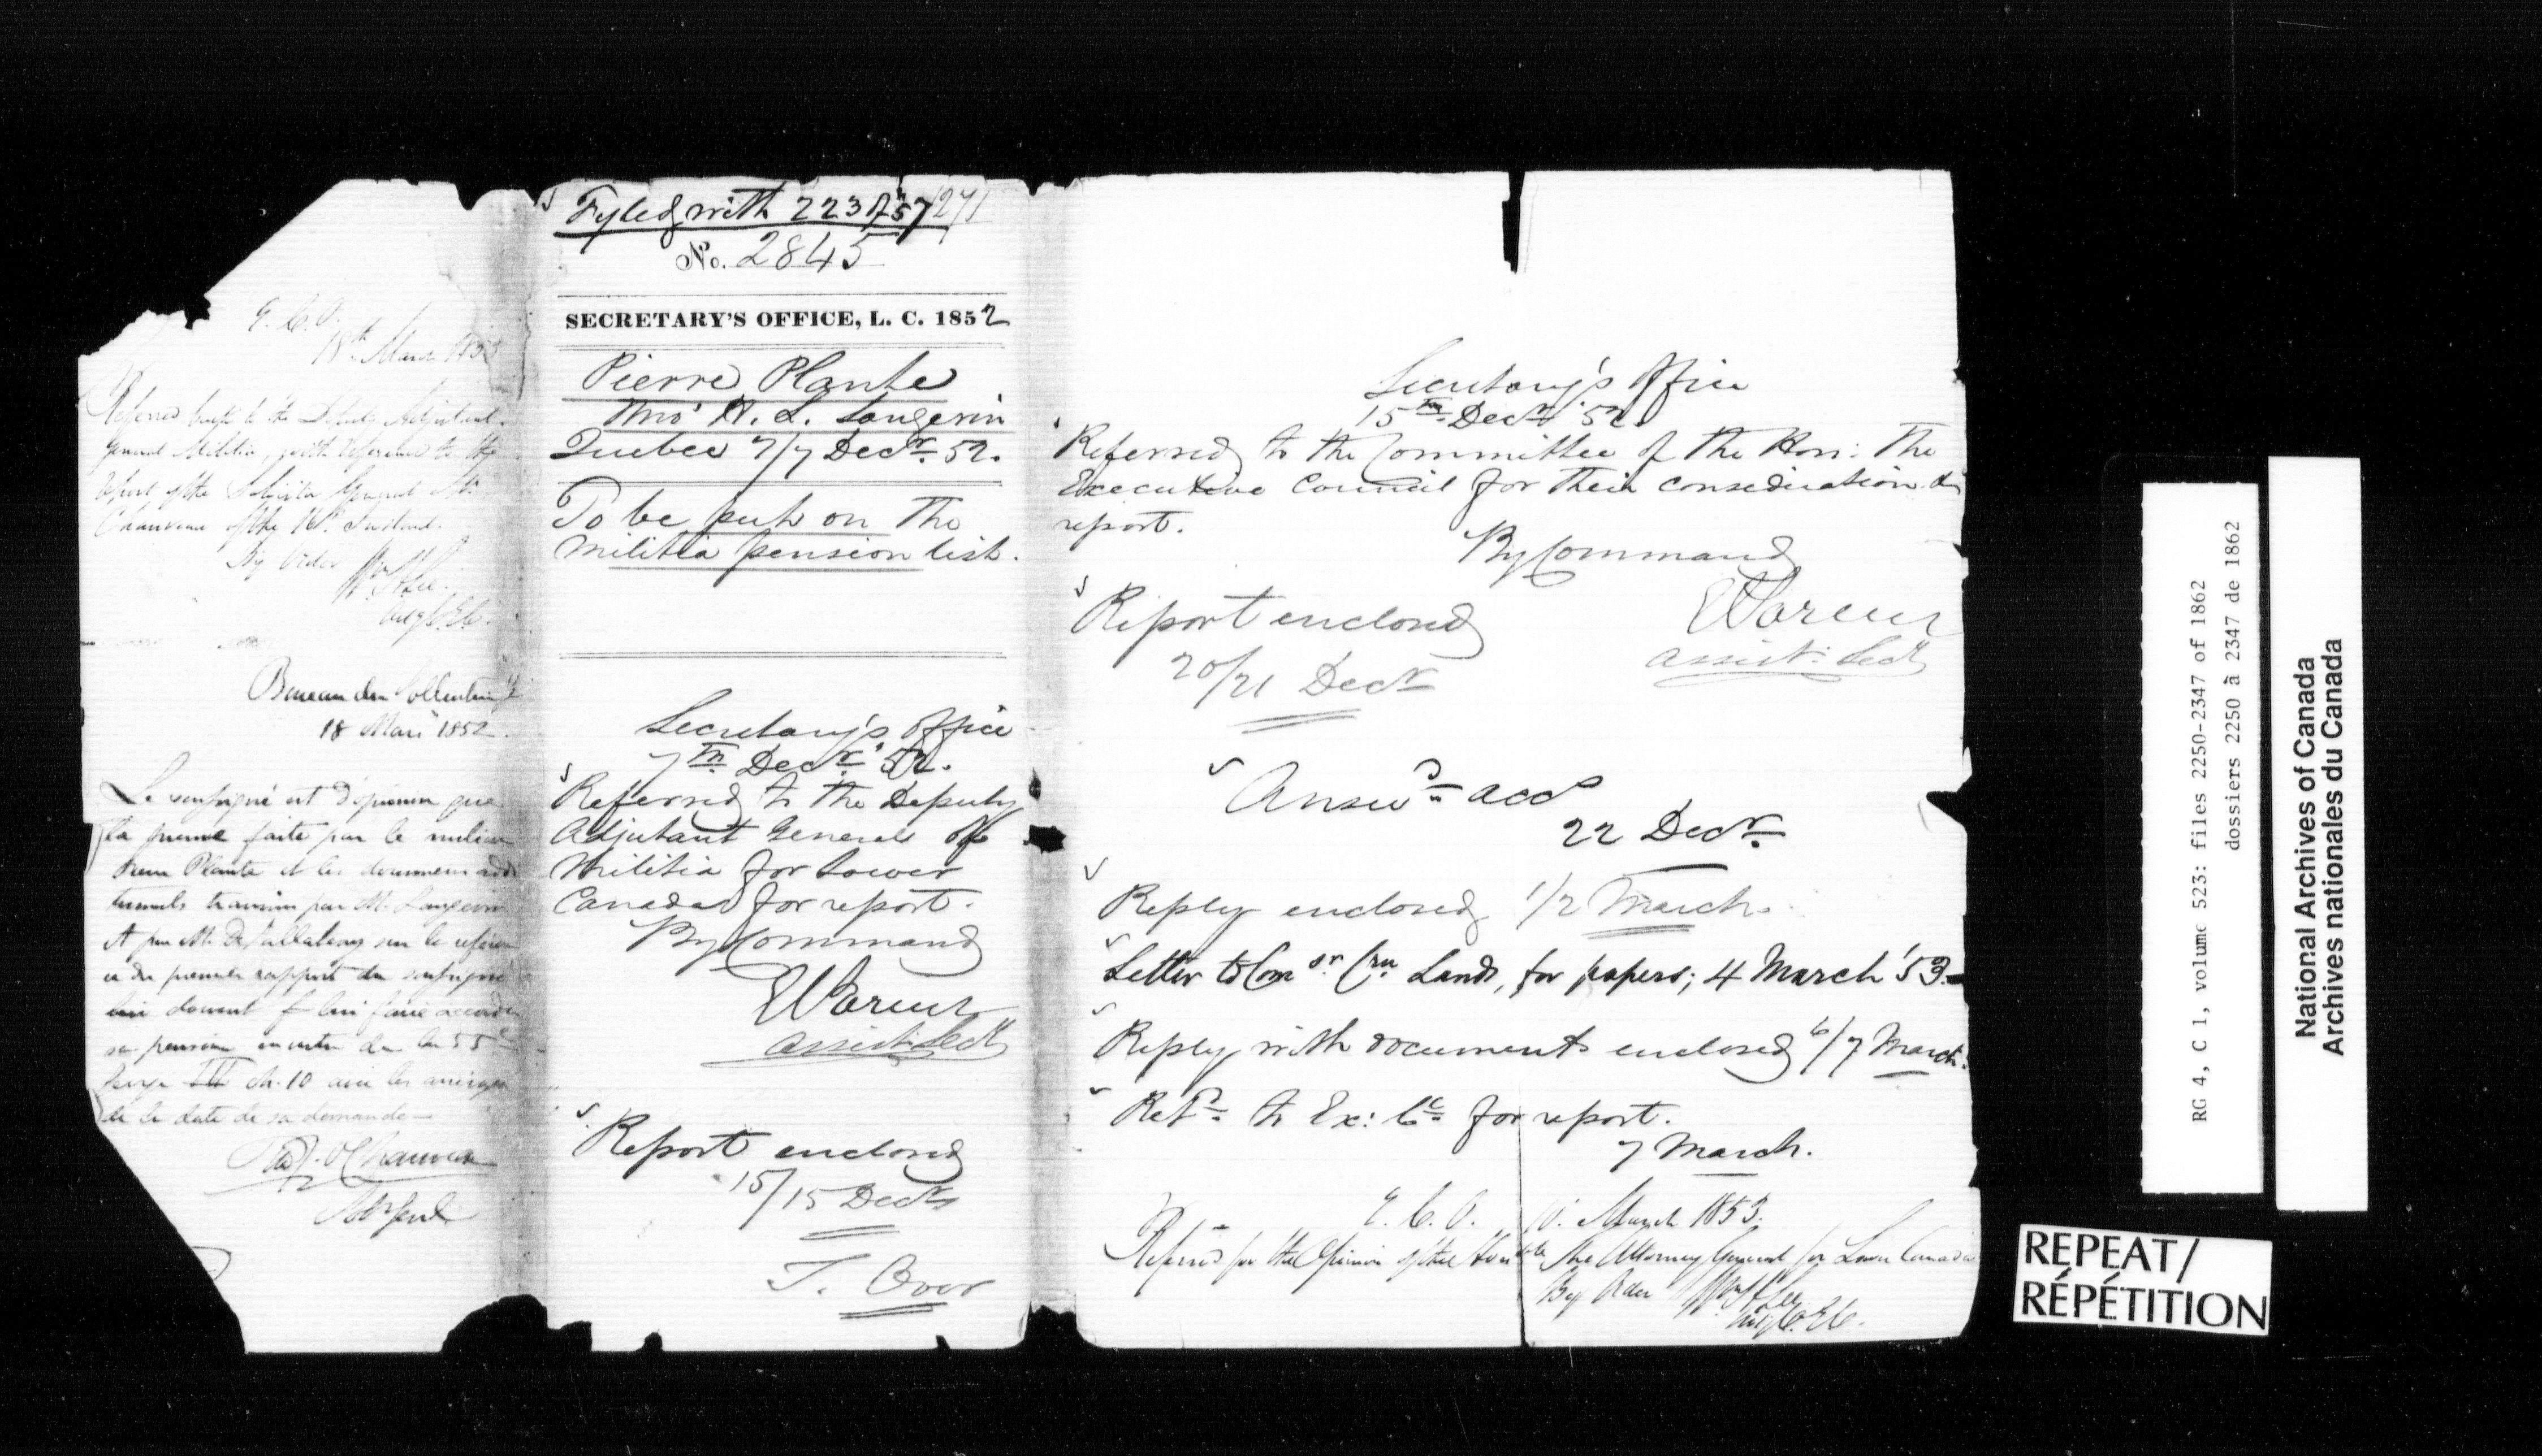 E. C. O.
18th March 1853
Referred back to the Deputy Adjutant
General Militia, with reference to the
Report of the Solicitor General Mr.
Chauveau of the 18th Instant.
By Order
Wm H. Lee.
Bureau du Solliciteur Gl
18 Mars 1852.
Le soussigné est d'opinion que
la preuve faite par le milicien
Pierre Plante et les documens addi
tionnels transmis par M. Langevin
et par M. DeSallaberry sur la référen
ce du premier rapport du soussigné
doivent lui faire accorder
sa pension en vertu de la 55e
George III ch. 10 avec les arrérages
de la date de sa demande —
P. J. O. Chauveau
Sol Genl
Fyled with 223 of 57/271
No. 2845
SECRETARY'S OFFICE, L. C. 1852
Pierre Plante
Thro' H. L. Langevin
Quebec 7/7 Decr. 52.
To be put on the
Militia pension list.
Secretary's Office
7th Decr. '52.
Referred to the Deputy
Adjutant General of
Militia for Lower
Canada for report.
By Command
E Parent
Assist: Secy
Report enclosed
15/15 Decr
T. Over
Secretary's Office
15th Decr '52.
Referred to the Committee of the Hon: The
Executive Council for their consideration &
report.
By Command
E Parent
Assist: Secy
Report enclosed
20/21 Decr
Answd accy
22 Decr.
Reply enclosed 1/2 March.
Letter to Comr Crn Lands, for papers; 4 March '53.
Reply with documents enclosed 6/7 March.
Refd to Ex: Cc for report.
7 March.
E. C. O. 10. March 1853.
Referred for the Opinion of the Honble The Attorney General for Lower Canada
By Order Wm H Lee
RG 4, C 1, volume 523: files 2250-2347 of 1862
dossiers 2250 à 2347 de 1862
National Archives of Canada
Archives nationales du Canada
REPEAT/
RÉPÉTITION